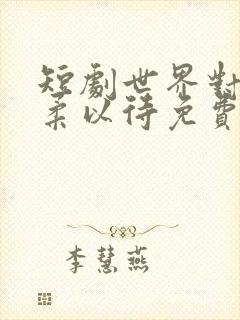 短劇世界對
柔以待免費
李慧燕